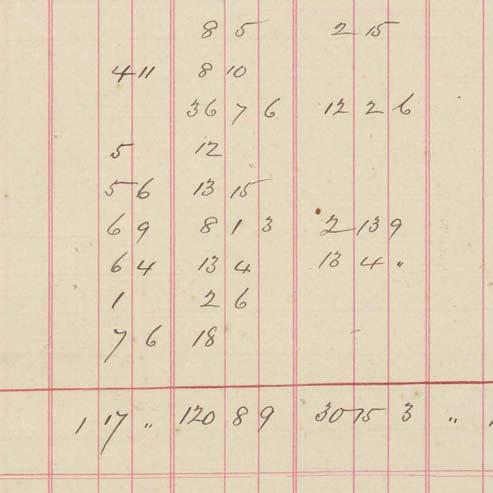 8 5 2 15
4 11 8 10
36 7 6 12 2 6
5 12
5 6 13 15
6 9 8 1 3 2 13 9
6 4 13 4 13 4 "
1 2 6
7 6 18
1 17 " 120 8 9 30 15 3 "